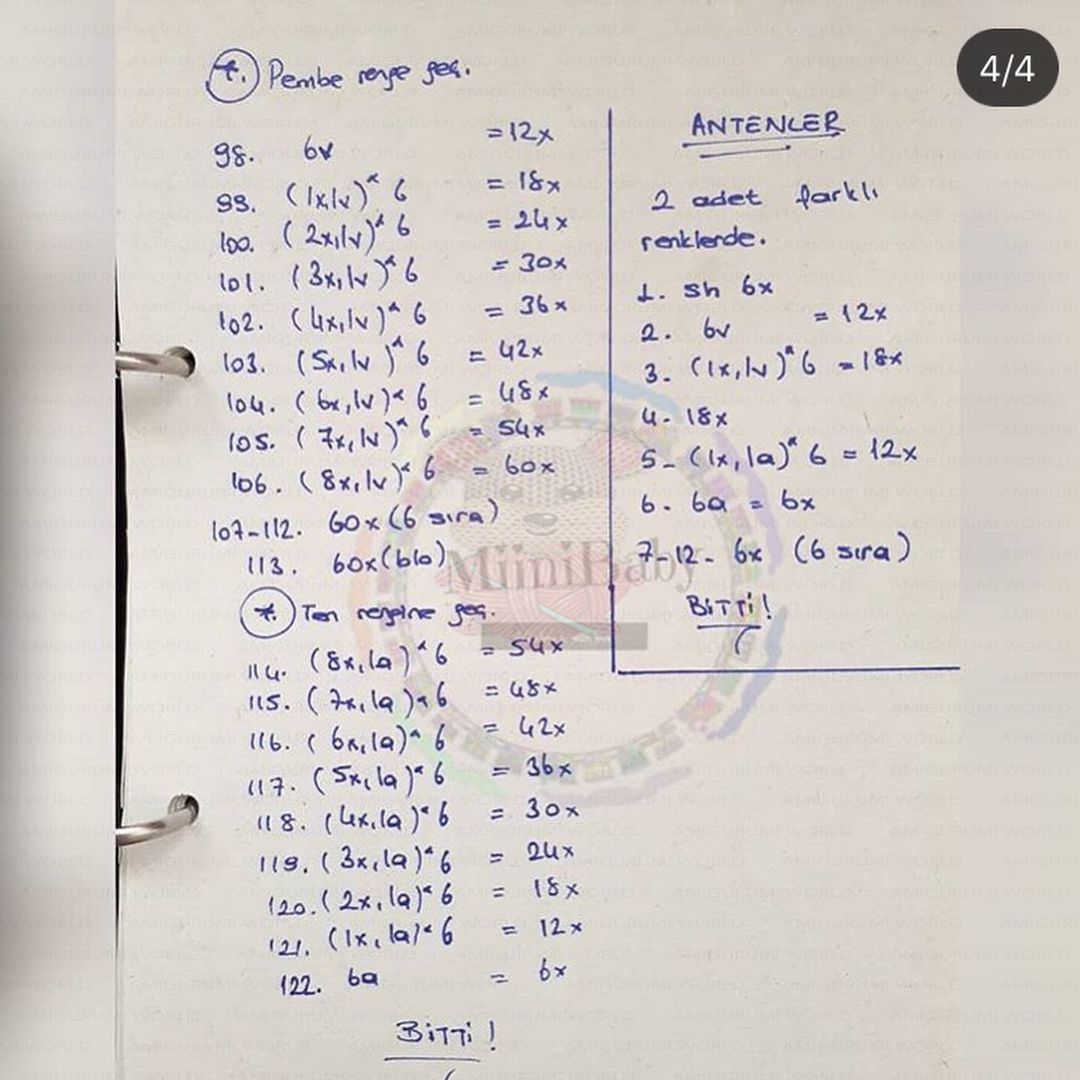 4/4
*. Pembe renge geç.
98. 6v = 12x
99. (1x,1v)* 6 = 18x
100. (2x,1v)* 6 = 24x
101. (3x,1v)* 6 = 30x
102. (4x,1v)* 6 = 36x
103. (5x,1v)* 6 = 42x
104. (6x,1v)* 6 = 48x
105. (7x,1v)* 6 = 54x
106. (8x,1v)* 6 = 60x
107-112. 60x (6 sıra)
113. 60x (blo)
*. Ten rengine geç.
114. (8x,1a)* 6 = 54x
115. (7x,1a)* 6 = 48x
116. (6x,1a)* 6 = 42x
117. (5x,1a)* 6 = 36x
118. (4x,1a)* 6 = 30x
119. (3x,1a)* 6 = 24x
120. (2x,1a)* 6 = 18x
121. (1x,1a)* 6 = 12x
122. 6a = 6x
BİTTİ!
ANTENLER
2 adet farklı
renklerde.
1. sh 6x
2. 6v = 12x
3. (1x,1v)* 6 = 18x
4- 18x
5- (1x,1a)* 6 = 12x
6. 6a = 6x
7-12- 6x (6 sıra)
BİTTİ!
MiiniBaby
AMIGURUMI WORLD